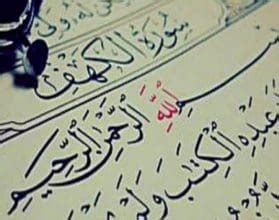 سُورَةُ الْكَهْفِ
بِسْمِ اللَّهِ الرَّحْمَٰنِ الرَّحِيمِ
عَبْدِهِ الْكِتَٰبَ وَلَمْ